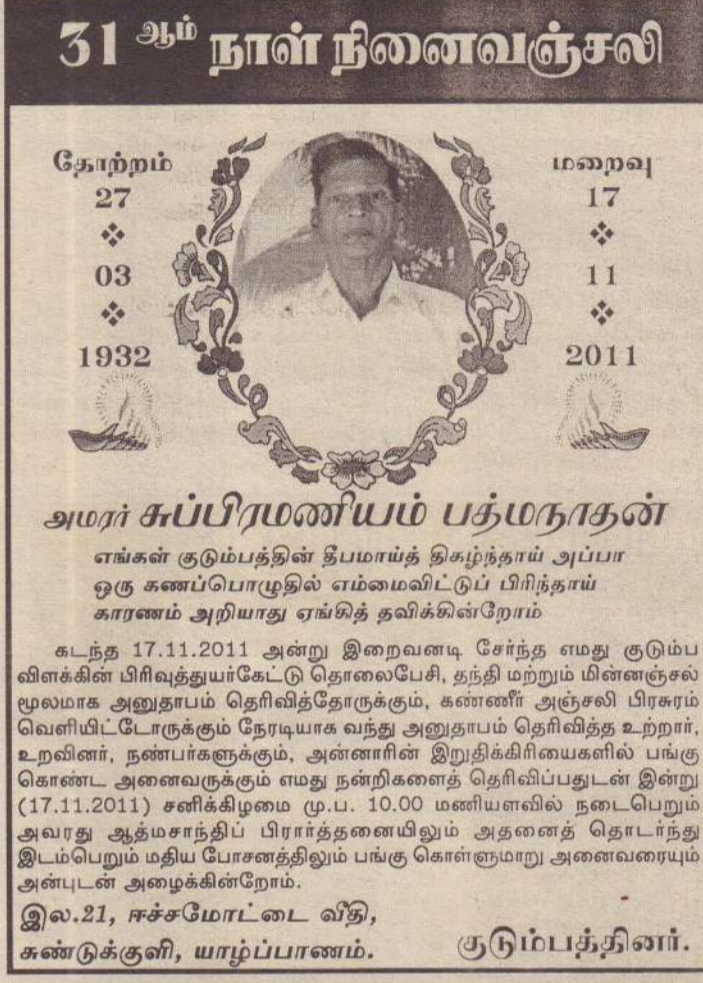 31 ஆம் நாள் நினைவஞ்சலி
தோற்றம்
27
03
1932
மறைவு
17
11
2011
அமரர் சுப்பிரமணியம் பத்மநாதன்
எங்கள் குடும்பத்தின் தீபமாய்த் திகழ்ந்தாய் அப்பா
ஒரு கணப்பொழுதில் எம்மைவிட்டுப் பிரிந்தாய்
காரணம் அறியாது ஏங்கித் தவிக்கின்றோம்
கடந்த 17.11.2011 அன்று இறைவனடி சேர்ந்த எமது குடும்ப
விளக்கின் பிரிவுத்துயர்கேட்டு தொலைபேசி, தந்தி மற்றும் மின்னஞ்சல்
மூலமாக அனுதாபம் தெரிவித்தோருக்கும், கண்ணீர் அஞ்சலி பிரசுரம்
வெளியிட்டோருக்கும் நேரடியாக வந்து அனுதாபம் தெரிவித்த உற்றார்,
உறவினர், நண்பர்களுக்கும், அன்னாரின் இறுதிக்கிரியைகளில் பங்கு
கொண்ட அனைவருக்கும் எமது நன்றிகளைத் தெரிவிப்பதுடன் இன்று
(17.11.2011) சனிக்கிழமை மு.ப. 10.00 மணியளவில் நடைபெறும்
அவரது ஆத்மசாந்திப் பிரார்த்தனையிலும் அதனைத் தொடர்ந்து
இடம்பெறும் மதிய போசனத்திலும் பங்கு கொள்ளுமாறு அனைவரையும்
அன்புடன் அழைக்கின்றோம்.
இல.21, ஈச்சமோட்டை வீதி,
சுண்டுக்குளி, யாழ்ப்பாணம்.
குடும்பத்தினர்.